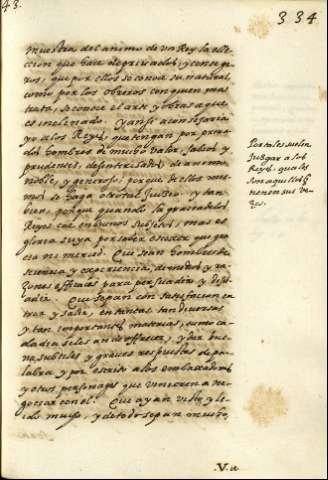 43.
334
muestra del animo de un Rey la ele-
ccion que hace de privados, y conseje-
ros; que por ellos se conoce su natural,
como por los obreros con quien mas
trata, se conoce el arte, y obras a que
es inclinado. Y ansi aconsejaria
yo a los Reyes, que tengan por priva-
dos hombres de mucho valor, sabios, y
prudentes, desinteresados, de animo
noble, y generoso; porque de ellos mes-
mos se haga otro tal juicio. Y tam-
bien, porque quando la gracia de los
Reyes cae en buenos subjetos, mas es
gloria suya, por saber escoger que gra-
cia ni merced. Que sean hombres de
sciencia y experiencia, de medios y ra-
zones efficaces para persuadir, y disu-
adir. Que sepan con satisfacion en-
trar y salir, en tantas, tan diversas
y tan importantes materias, como ca-
da dia se les an de offrecer, y dar bue-
nas, subtiles y graves respuestas de pa-
labra y por escrito a los embaxadores
y otros personages que vinieren a ne-
gociar con el. Que ayan visto, y le-
ido mucho, y de todo sepan mucho,
Por tales suelen
Juzgar a los
Reyes, quales
son aquellos q
tienen sus ve-
zes.